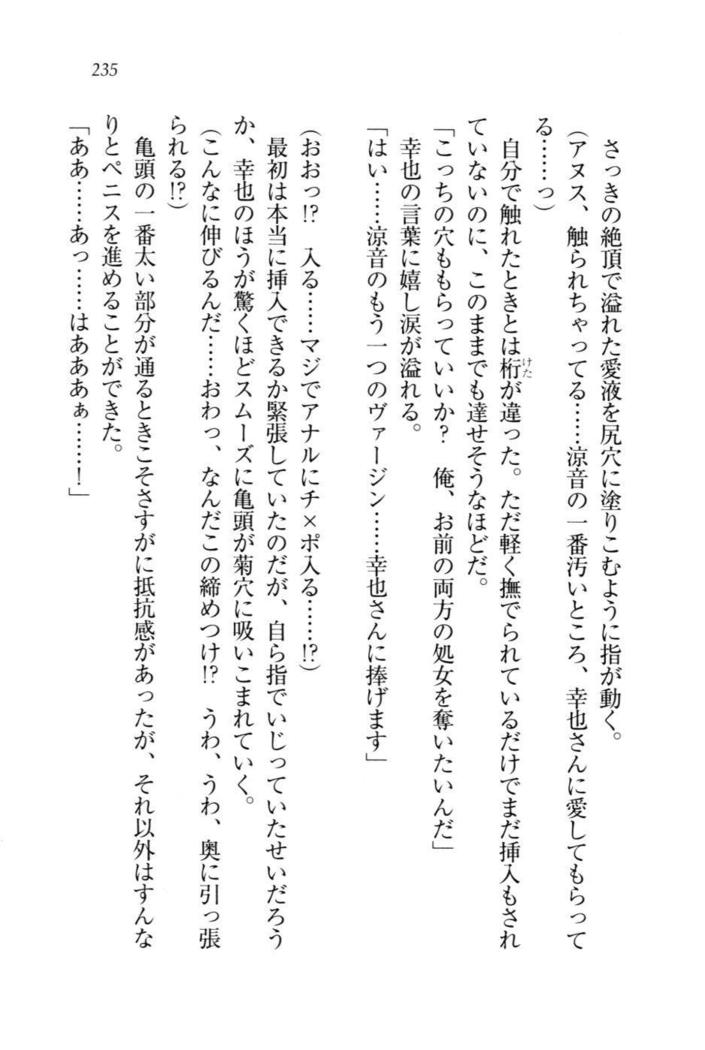 235
さっきの絶頂で溢れた愛液を尻穴に塗りこむように指が動く。
（アヌス、触られちゃってる……涼音の一番汚いところ、幸也さんに愛してもらって
る……っ）
自分で触れたときとは桁が違った。ただ軽く撫でられているだけでまだ挿入もされ
ていないのに、このままでも達せそうなほどだ。
「こっちの穴ももらっていいか？　俺、お前の両方の処女を奪いたいんだ」
幸也の言葉に嬉し涙が溢れる。
「はい……涼音のもう一つのヴァージン……幸也さんに捧げます」
（おおっ!?　入る……マジでアナルにチ×ポ入る……!?）
最初は本当に挿入できるか緊張していたのだが、自ら指でいじっていたせいだろう
か、幸也のほうが驚くほどスムーズに亀頭が菊穴に吸いこまれていく。
（こんなに伸びるんだ……おわっ、なんだこの締めつけ!?　うわ、うわ、奥に引っ張
られる!?）
亀頭の一番太い部分が通るときこそさすがに抵抗感があったが、それ以外はすんな
りとペニスを進めることができた。
「ああ……あっ……はあああぁ……！」
けた